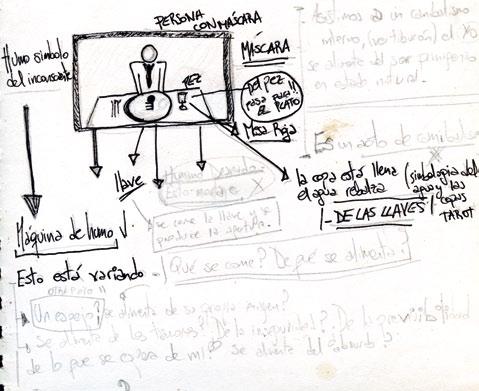 PERSONA
CON MÁSCARA
Humo símbolo
del inconsciente
MÁSCARA
PEZ
DEL PEZ
PASA PARA!!
EL PLATO
Mesa Roja
Asistimos a un canibalismo
interno, (
se alimenta del ser primigenio
en estado natural.
Es un acto de canibalismo
llave
Humana Devorada
Esto
la copa está llena
el agua rebalza
(simbología del
agua y las
copas
TAROT
DE LAS LLAVES
Máquina de humo
se come la llave y se
produce la apertura.
Esto está variando
¿Qué se come? ¿De qué se alimenta?
Un espejo? se alimenta de su propia imagen?
se alimenta de los temores? De la inseguridad? De la previsibilidad
de lo que se espera de mí? se alimenta del absurdo?